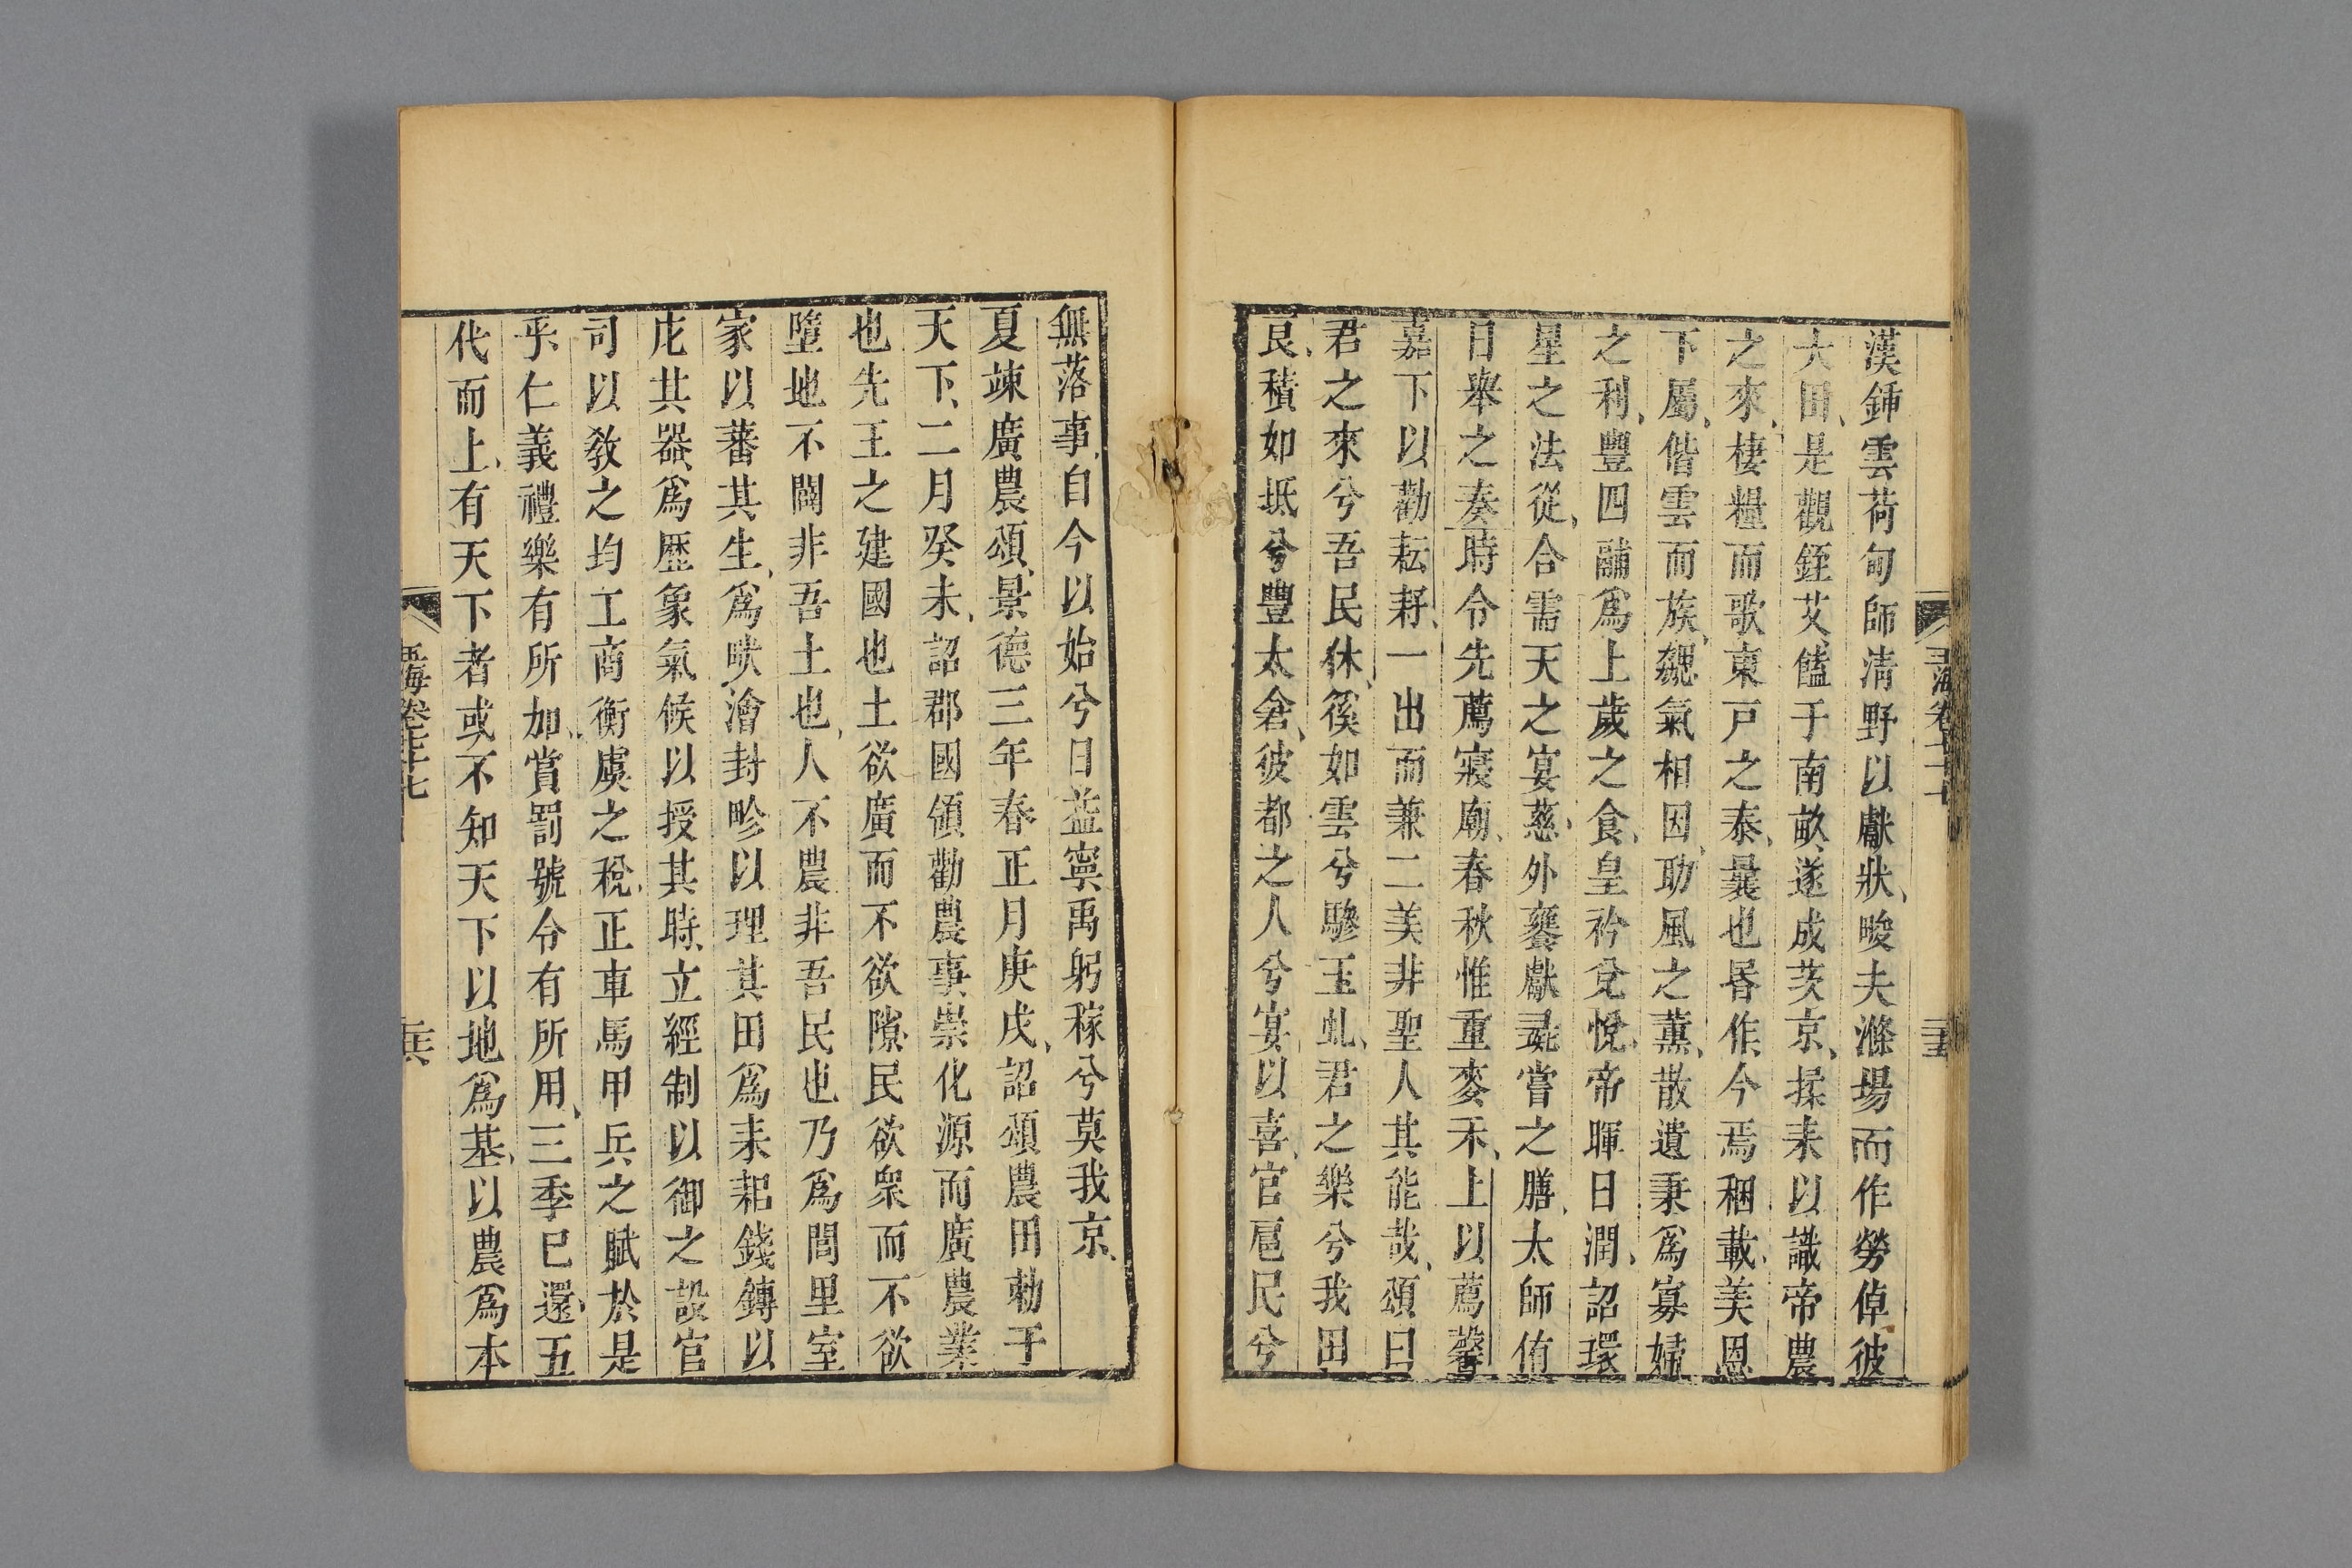 漢鍤雲荷甸師清野以獻狀畯夫滌場而作勞倬彼
大田是觀銍艾饁于南畝遂成茨京揉耒以識帝農
之來棲糧而歌東戸之泰曩也昏作今焉稛載美恩
下屬偕雲而族飊氣相因助風之薰散遺秉爲寡婦
之利豐四鬴爲上歲之食皇衿兌悅帝暉日潤詔環
星之法從合需天之宴慈外饔獻毚嘗之膳太師侑
日舉之奏時令先薦寢廟春秋惟重麥禾上以薦馨
嘉下以勸耘耔一出而兼二美非聖人其能哉頌曰
君之來兮吾民休徯如雲兮驂玉虬君之樂兮我田
良積如坻兮豐太倉彼都之人兮宴以喜官扈民兮
無落事自今以始兮日益寧禹躬稼兮莫我京
夏竦廣農頌景德三年春正月庚戌詔頌農田勅于
天下二月癸未詔郡國領勸農事崇化源而廣農業
也先王之建國也土欲廣而不欲隙民欲衆而不欲
墮地不闢非吾土也人不農非吾民也乃爲閭里室
家以蕃其生爲畎澮封畛以理其田爲耒耜錢鎛以
庀其器爲歴象氣候以授其時立經制以御之設官
司以敎之均工商衡虞之稅正車馬甲兵之賦於是
乎仁義禮樂有所加賞罰號令有所用三季已還五
代而上有天下者或不知天下以地爲基以農爲本